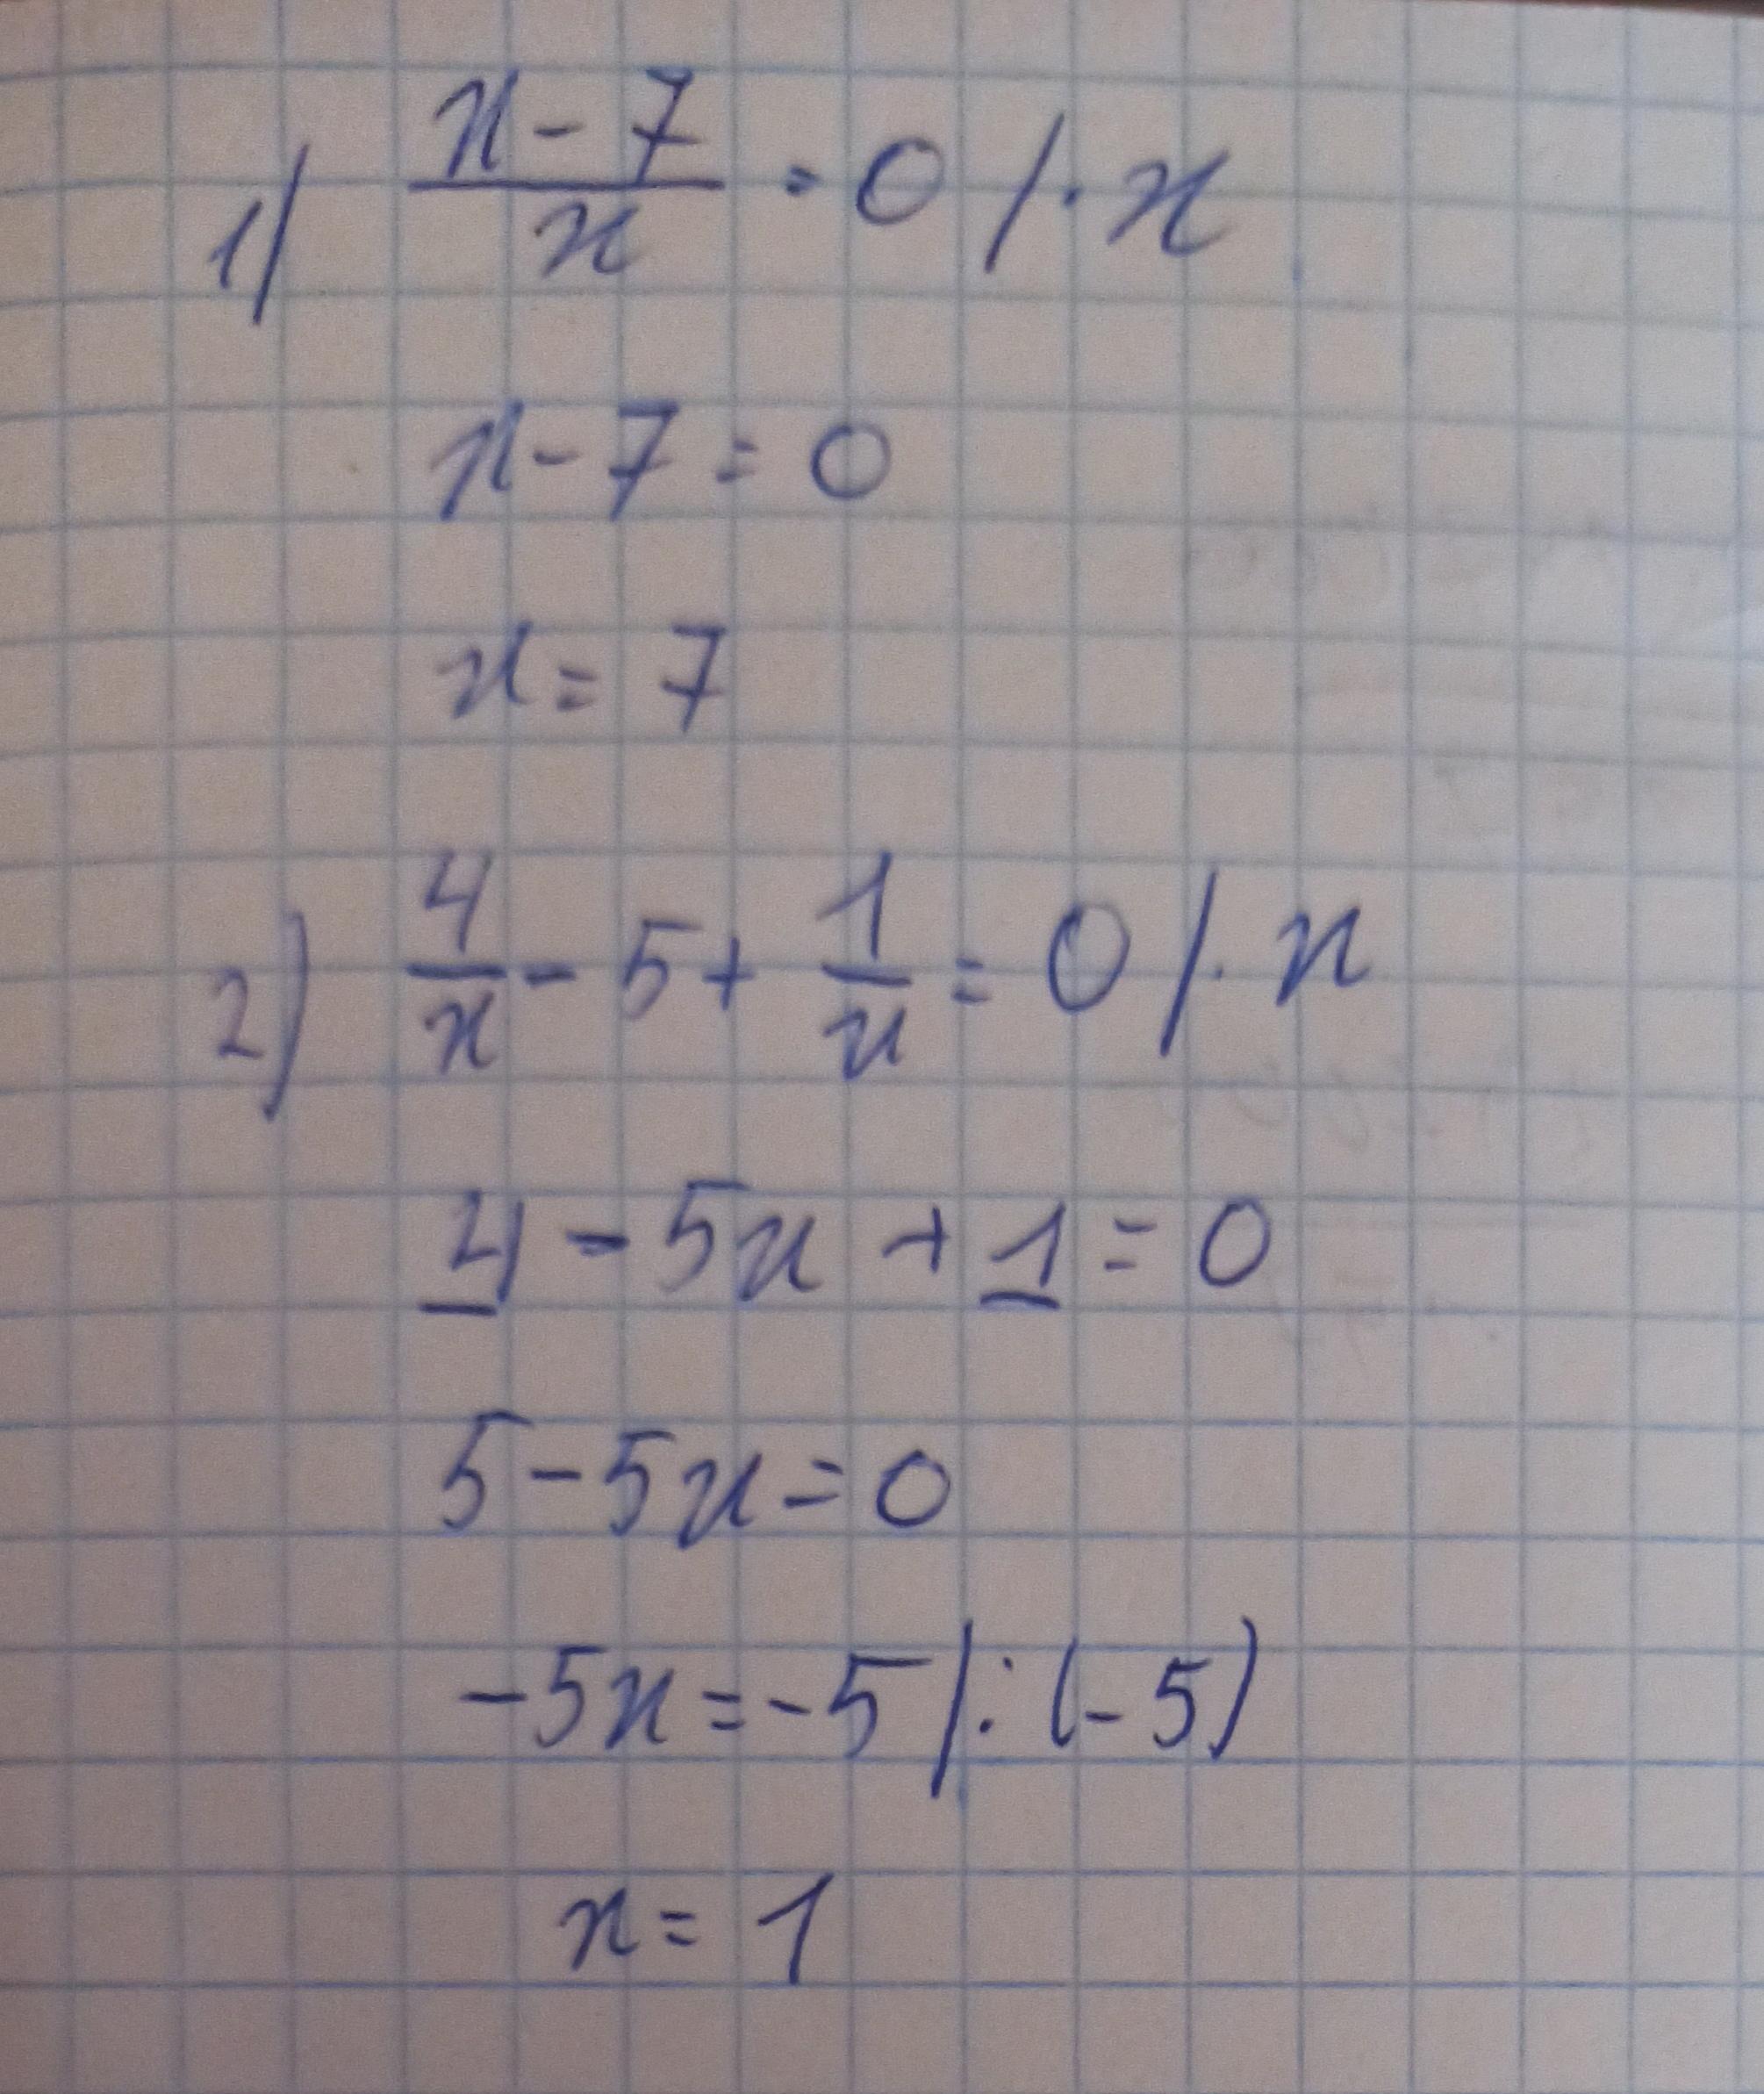 1) \frac{x-7}{x} = 0 /· x
x - 7 = 0
x = 7
2) \frac{4}{x} - 5 + \frac{1}{x} = 0 /· x
4 - 5x + 1 = 0
5 - 5x = 0
-5x = -5 /: (-5)
x = 1